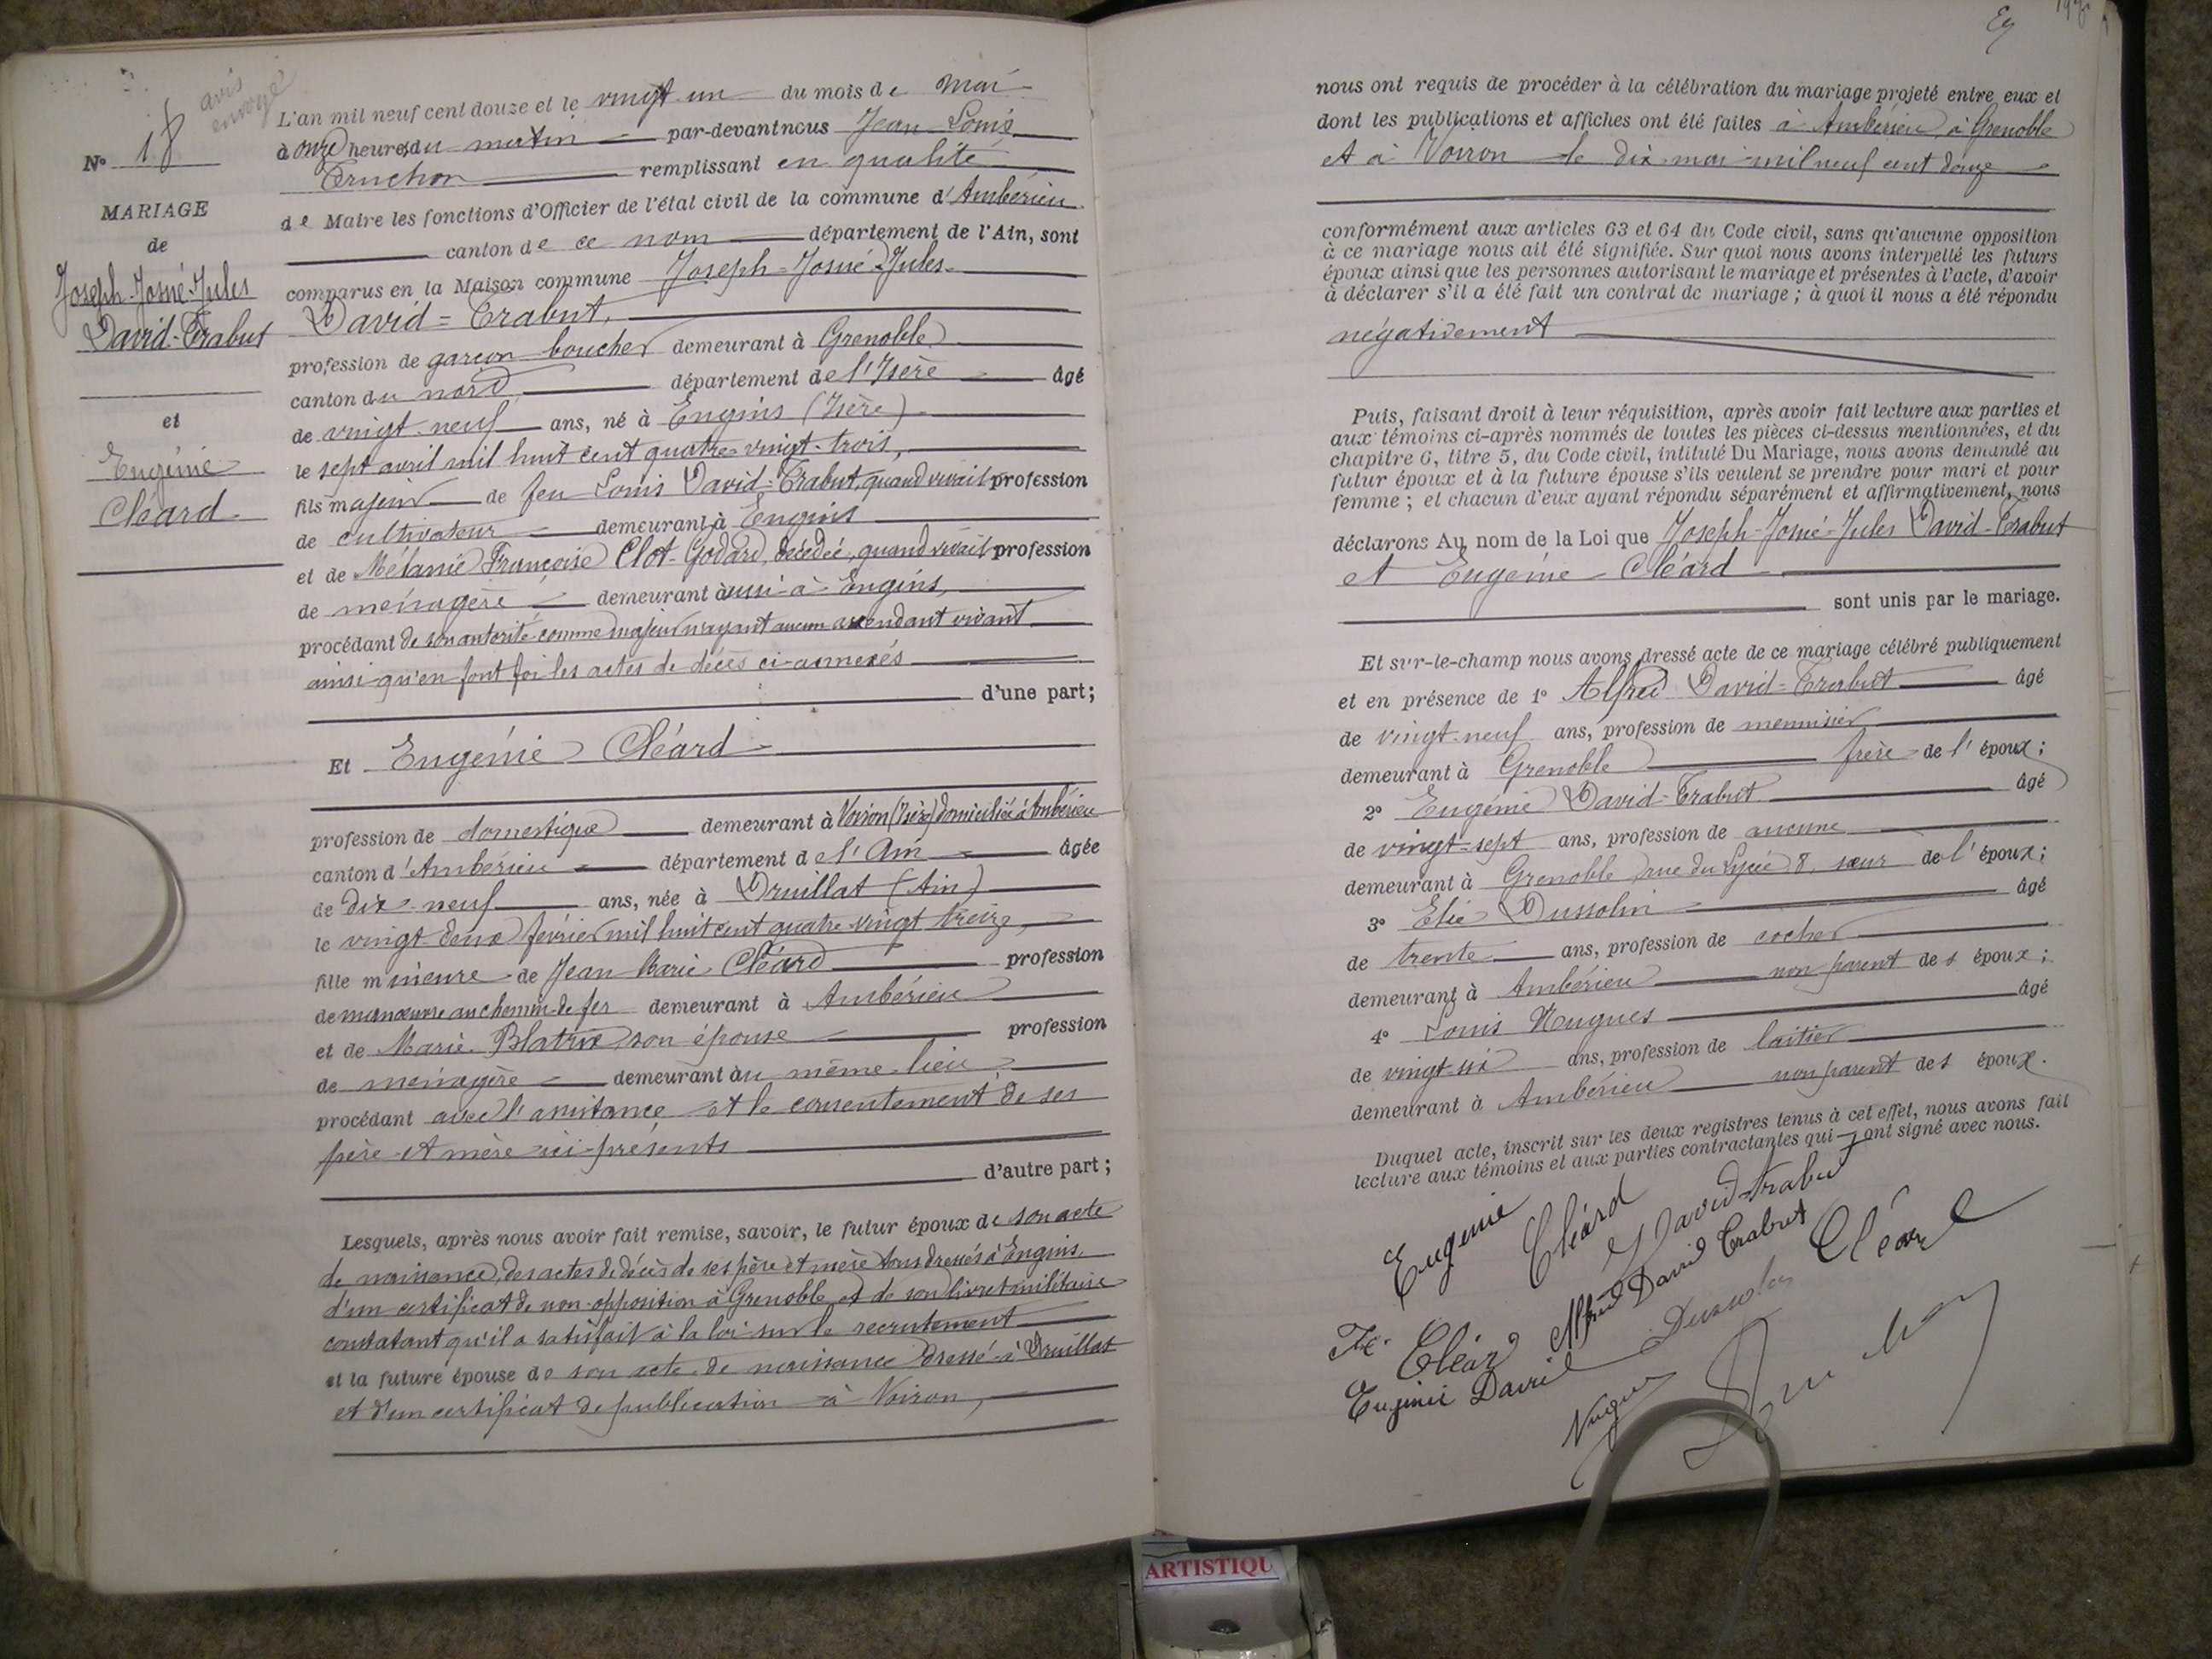 avis
envoyé
N° 18
MARIAGE
de
Joseph-Josué-Jules
David-Trabut
et
Eugénie
Cléard
L'an mil neuf cent douze et le vingt-un du mois de Mai
à onze heures du matin par-devant nous Jean-Louis
Truchon remplissant en qualité
de Maire les fonctions d'Officier de l'état civil de la commune d'Ambérieu
canton de ce nom département de l'Ain, sont
comparus en la Maison commune Joseph-Josué-Jules
David=Trabut,
profession de garçon boucher demeurant à Grenoble
canton du nord département de l'Isère âgé
de vingt-neuf ans, né à Engins (Isère)
le sept avril mil huit cent quatre-vingt-trois,
fils majeur de feu Louis David-Trabut, quand vivait profession
de cultivateur demeurant à Engins
et de Mélanie Françoise Clot-Godard, décédée, quand vivait profession
de ménagère demeurant aussi à Engins,
procédant de son autorité comme majeur n'ayant aucun ascendant vivant
ainsi qu'en font foi les actes de décès ci-annexés
d'une part;
Et Eugénie Cléard
profession de domestique demeurant à Voiron (Isère) domiciliée à Ambérieu
canton d'Ambérieu département de l'Ain âgée
de dix-neuf ans, née à Druillat (Ain)
le vingt-deux février mil huit cent quatre-vingt treize,
fille mineure de Jean Marie Cléard profession
de manœuvre au chemin de fer demeurant à Ambérieu
et de Marie Blatrix son épouse profession
de ménagère demeurant au même lieu
procédant avec l'assistance et le consentement de ses
père et mère ici présents
d'autre part;
Lesquels, après nous avoir fait remise, savoir, le futur époux de son acte
de naissance, des actes de décès de ses père et mère tous dressés à Engins,
d'un certificat de non-opposition à Grenoble et de son livret militaire
constatant qu'il a satisfait à la loi sur le recrutement
et la future épouse de son acte de naissance dressé à Druillat
et d'un certificat de publication à Voiron,
nous ont requis de procéder à la célébration du mariage projeté entre eux et
dont les publications et affiches ont été faites à Ambérieu, à Grenoble
et à Voiron le dix mai mil neuf cent douze
conformément aux articles 63 et 64 du Code civil, sans qu'aucune opposition
à ce mariage nous ait été signifiée. Sur quoi nous avons interpellé les futurs
époux ainsi que les personnes autorisant le mariage et présentes à l'acte, d'avoir
à déclarer s'il a été fait un contrat de mariage ; à quoi il nous a été répondu
négativement
Puis, faisant droit à leur réquisition, après avoir fait lecture aux parties et
aux témoins ci-après nommés de toutes les pièces ci-dessus mentionnées, et du
chapitre 6, titre 5, du Code civil, intitulé Du Mariage, nous avons demandé au
futur époux et à la future épouse s'ils veulent se prendre pour mari et pour
femme ; et chacun d'eux ayant répondu séparément et affirmativement, nous
déclarons Au nom de la Loi que Joseph-Josué-Jules David-Trabut
et Eugénie Cléard
sont unis par le mariage.
Et sur-le-champ nous avons dressé acte de ce mariage célébré publiquement
et en présence de 1° Alfred David-Trabut âgé
de vingt-neuf ans, profession de menuisier
demeurant à Grenoble frère de l'époux ;
2° Eugénie David-Trabut âgé
de vingt-sept ans, profession de aucune
demeurant à Grenoble rue du Lycée 8, sœur de l'époux ;
3° Elie Dussolin âgé
de trente ans, profession de cocher
demeurant à Ambérieu non parent des époux ;
4° Louis Nugues âgé
de vingt-six ans, profession de laitier
demeurant à Ambérieu non parent des époux.
Duquel acte, inscrit sur les deux registres tenus à cet effet, nous avons fait
lecture aux témoins et aux parties contractantes qui ont signé avec nous.
Eugenie Cléard David-trabut
Alfred David Trabut Cléard
Fe. Cléard
Eugénie David
Nugues
ARTISTIQU